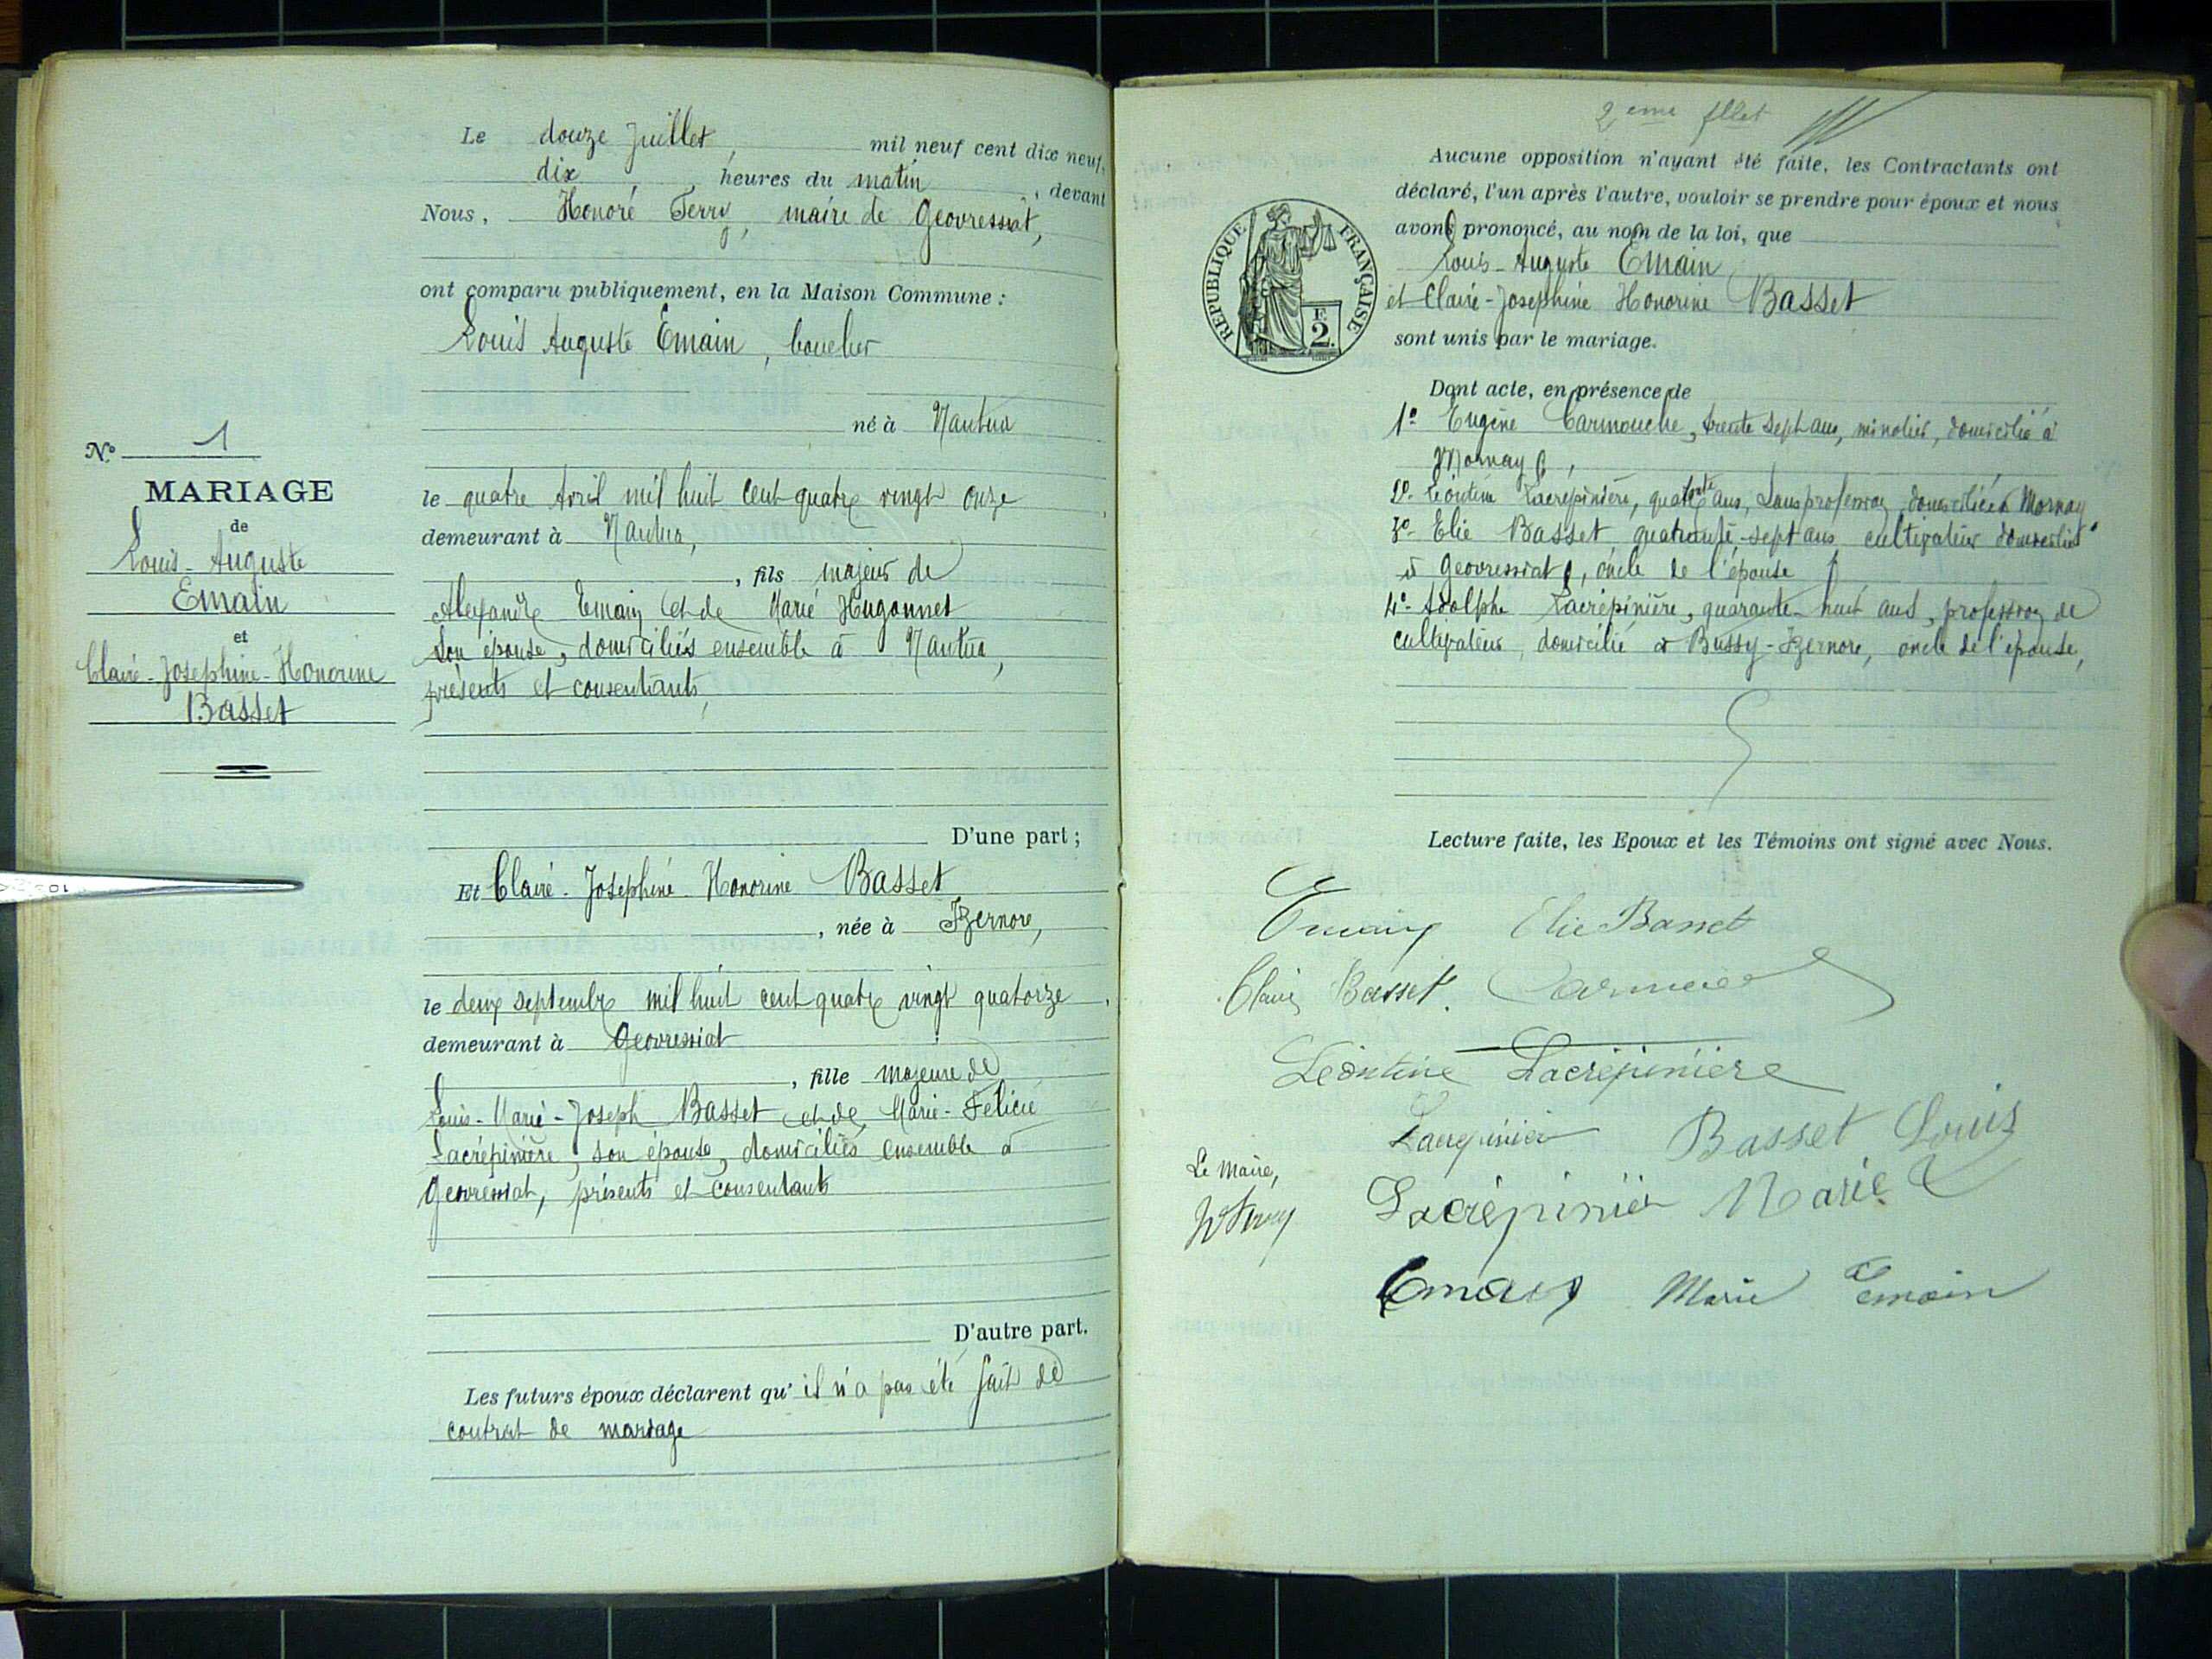 Le douze Juillet, mil neuf cent dix neuf,
dix, heures du matin, devant
Nous, Honoré Ferry, maire de Geovressiat,
ont comparu publiquement, en la Maison Commune :
Louis Auguste Emain, boucher
né à Nantua
le quatre Avril mil huit cent quatre vingt onze
demeurant à Nantua,
, fils majeur de
Alexandre Emain et de Marie Hugonnet
son épouse, domiciliés ensemble à Nantua,
présents et consentants,
D'une part ;
Et Claire-Josephine Honorine Basset
, née à Izernore,
le deux septembre mil huit cent quatre vingt quatorze,
demeurant à Geovressiat
, fille majeure de
Louis-Marie-Joseph Basset et de Marie-Félicie
Lacrépinière, son épouse, domiciliés ensemble à
Geovressiat, présents et consentants
D'autre part.
Les futurs époux déclarent qu' il n'a pas été fait de
contrat de mariage
No 1
MARIAGE
de
Louis-Auguste
Emain
et
Claire-Josephine-Honorine
Basset
2eme
Aucune opposition n'ayant été faite, les Contractants ont
déclaré, l'un après l'autre, vouloir se prendre pour époux et nous
avons prononcé, au nom de la loi, que
Louis-Auguste Emain
et Claire-Josephine Honorine Basset
sont unis par le mariage.
RÉPUBLIQUE FRANÇAISE
F.
2.
Dont acte, en présence de
1° Eugène Carmouche, trente sept ans, minotier, domicilié à
Mornay,
2°- Léontine Lacrepinière, quarante ans, sans profession, domiciliée à Mornay
3°- Elie Basset quarante-sept ans cultivateur domicilié
à Geovressiat, oncle de l'épouse
4°- Adolphe Lacrépinière, quarante-huit ans, profession de
cultivateur, domicilié à Bussy-Izernore, oncle de l'épouse,
Lecture faite, les Epoux et les Témoins ont signé avec Nous.
Emain Elie Basset
Claire Basset.
Léontine Lacrépinière
Basset Louis
Le Maire,
Lacrépinièr Marie
Emain Marie Emain